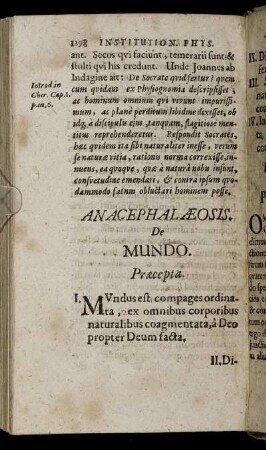 1298 INSTITUTION. PHYS.
ant. Secus qvi faciunt, temerarii sunt: &
stulti qvi his credunt. Unde Joannes ab
Indagine ait: De Socrate qvid fertur? quem
Introd. in
Chir. Cap. 1.
p. m. 6.
cum quidam ex Physognomia descripsisset,
ac hominum omnium qui verunt impurissi-
mum, ac planè perditum libidine dixisset, ob
idq, à discipulis ejus, tanqvam, flagitiose men-
titus reprehenderetur. Respondit Socrates,
hæc quidem ita sibi naturaliter inesse, verum
se naturæ vitia, rationis norma correxisse, in-
nuens, ea qvoqve, quæ à naturâ nobis insunt,
consvetudine emendari, & contra ipsum qvo-
dammodo fatum obluctari hominem posse.
ANACEPHALÆOSIS.
De
MUNDO.
Præcepta.
I. MVndus est compages ordina-
ta, ex omnibus corporibus
naturalibus coagmentata, à Deo
propter Deum facta.
II. Di-